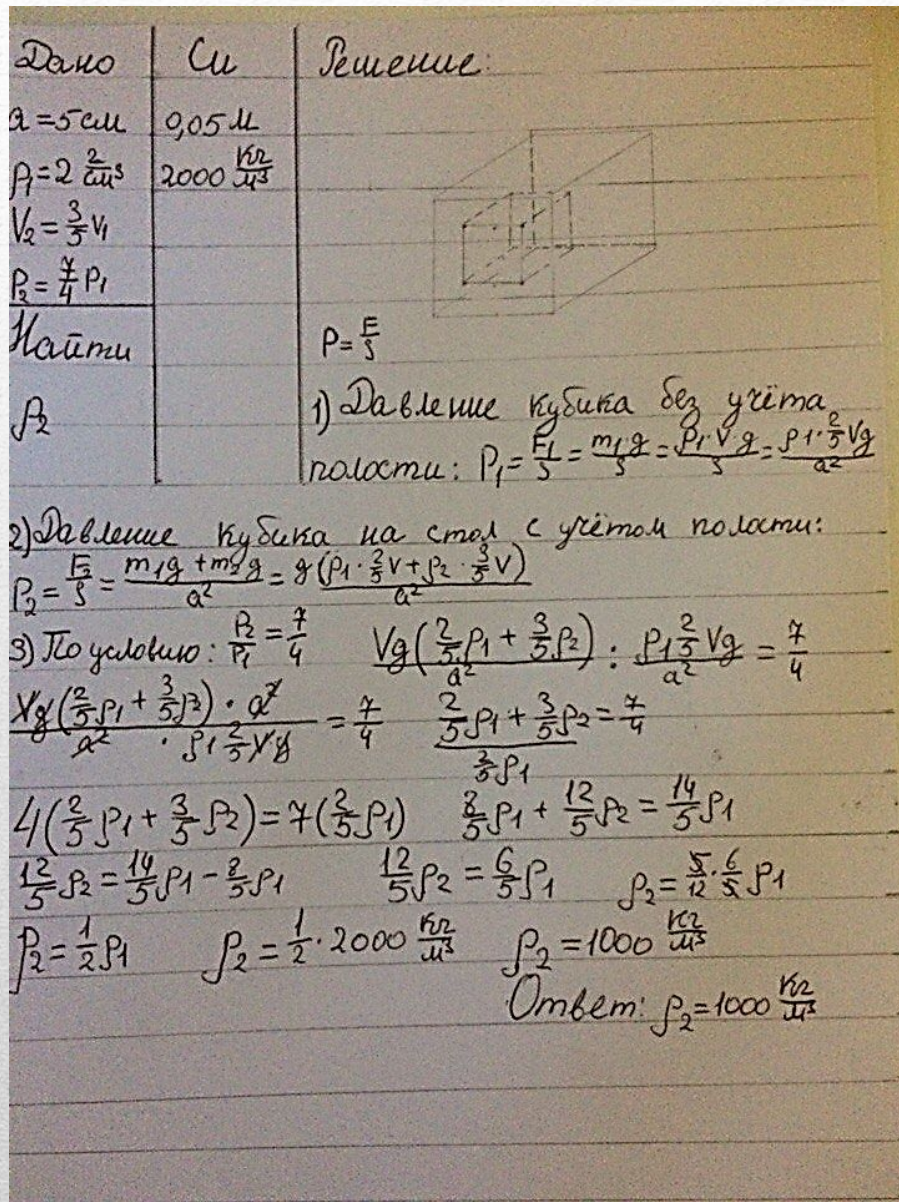 Дано | Си | Решение:
a = 5 см | 0,05 м
ρ₁ = 2 г/см³ | 2000 кг/м³
V₂ = 3/5 V₁
P₂ = 7/4 P₁
Найти
P = F/S
ρ₂
1) Давление кубика без учёта
полости: P₁ = F₁/S = m₁g/S = ρ₁·V·g/S = ρ1·2/5Vg/a²
2) Давление кубика на стол с учётом полости:
P₂ = F₂/S = (m₁g + m₂g)/a² = g(ρ₁·2/5V + ρ₂·3/5V)/a²
3) По условию: P₂/P₁ = 7/4 Vg(2/5ρ₁ + 3/5ρ₂)/a² : ρ₁2/5Vg/a² = 7/4
Vg(2/5ρ₁ + 3/5ρ₂)·a²/a²·ρ₁2/5Vg = 7/4 (2/5ρ₁ + 3/5ρ₂)/(2/5ρ₁) = 7/4
4(2/5ρ₁ + 3/5ρ₂) = 7(2/5ρ₁) 8/5ρ₁ + 12/5ρ₂ = 14/5ρ₁
12/5ρ₂ = 14/5ρ₁ - 8/5ρ₁ 12/5ρ₂ = 6/5ρ₁ ρ₂ = 5/12·6/5ρ₁
ρ₂ = 1/2ρ₁ ρ₂ = 1/2·2000 кг/м³ ρ₂ = 1000 кг/м³
Ответ: ρ₂ = 1000 кг/м³